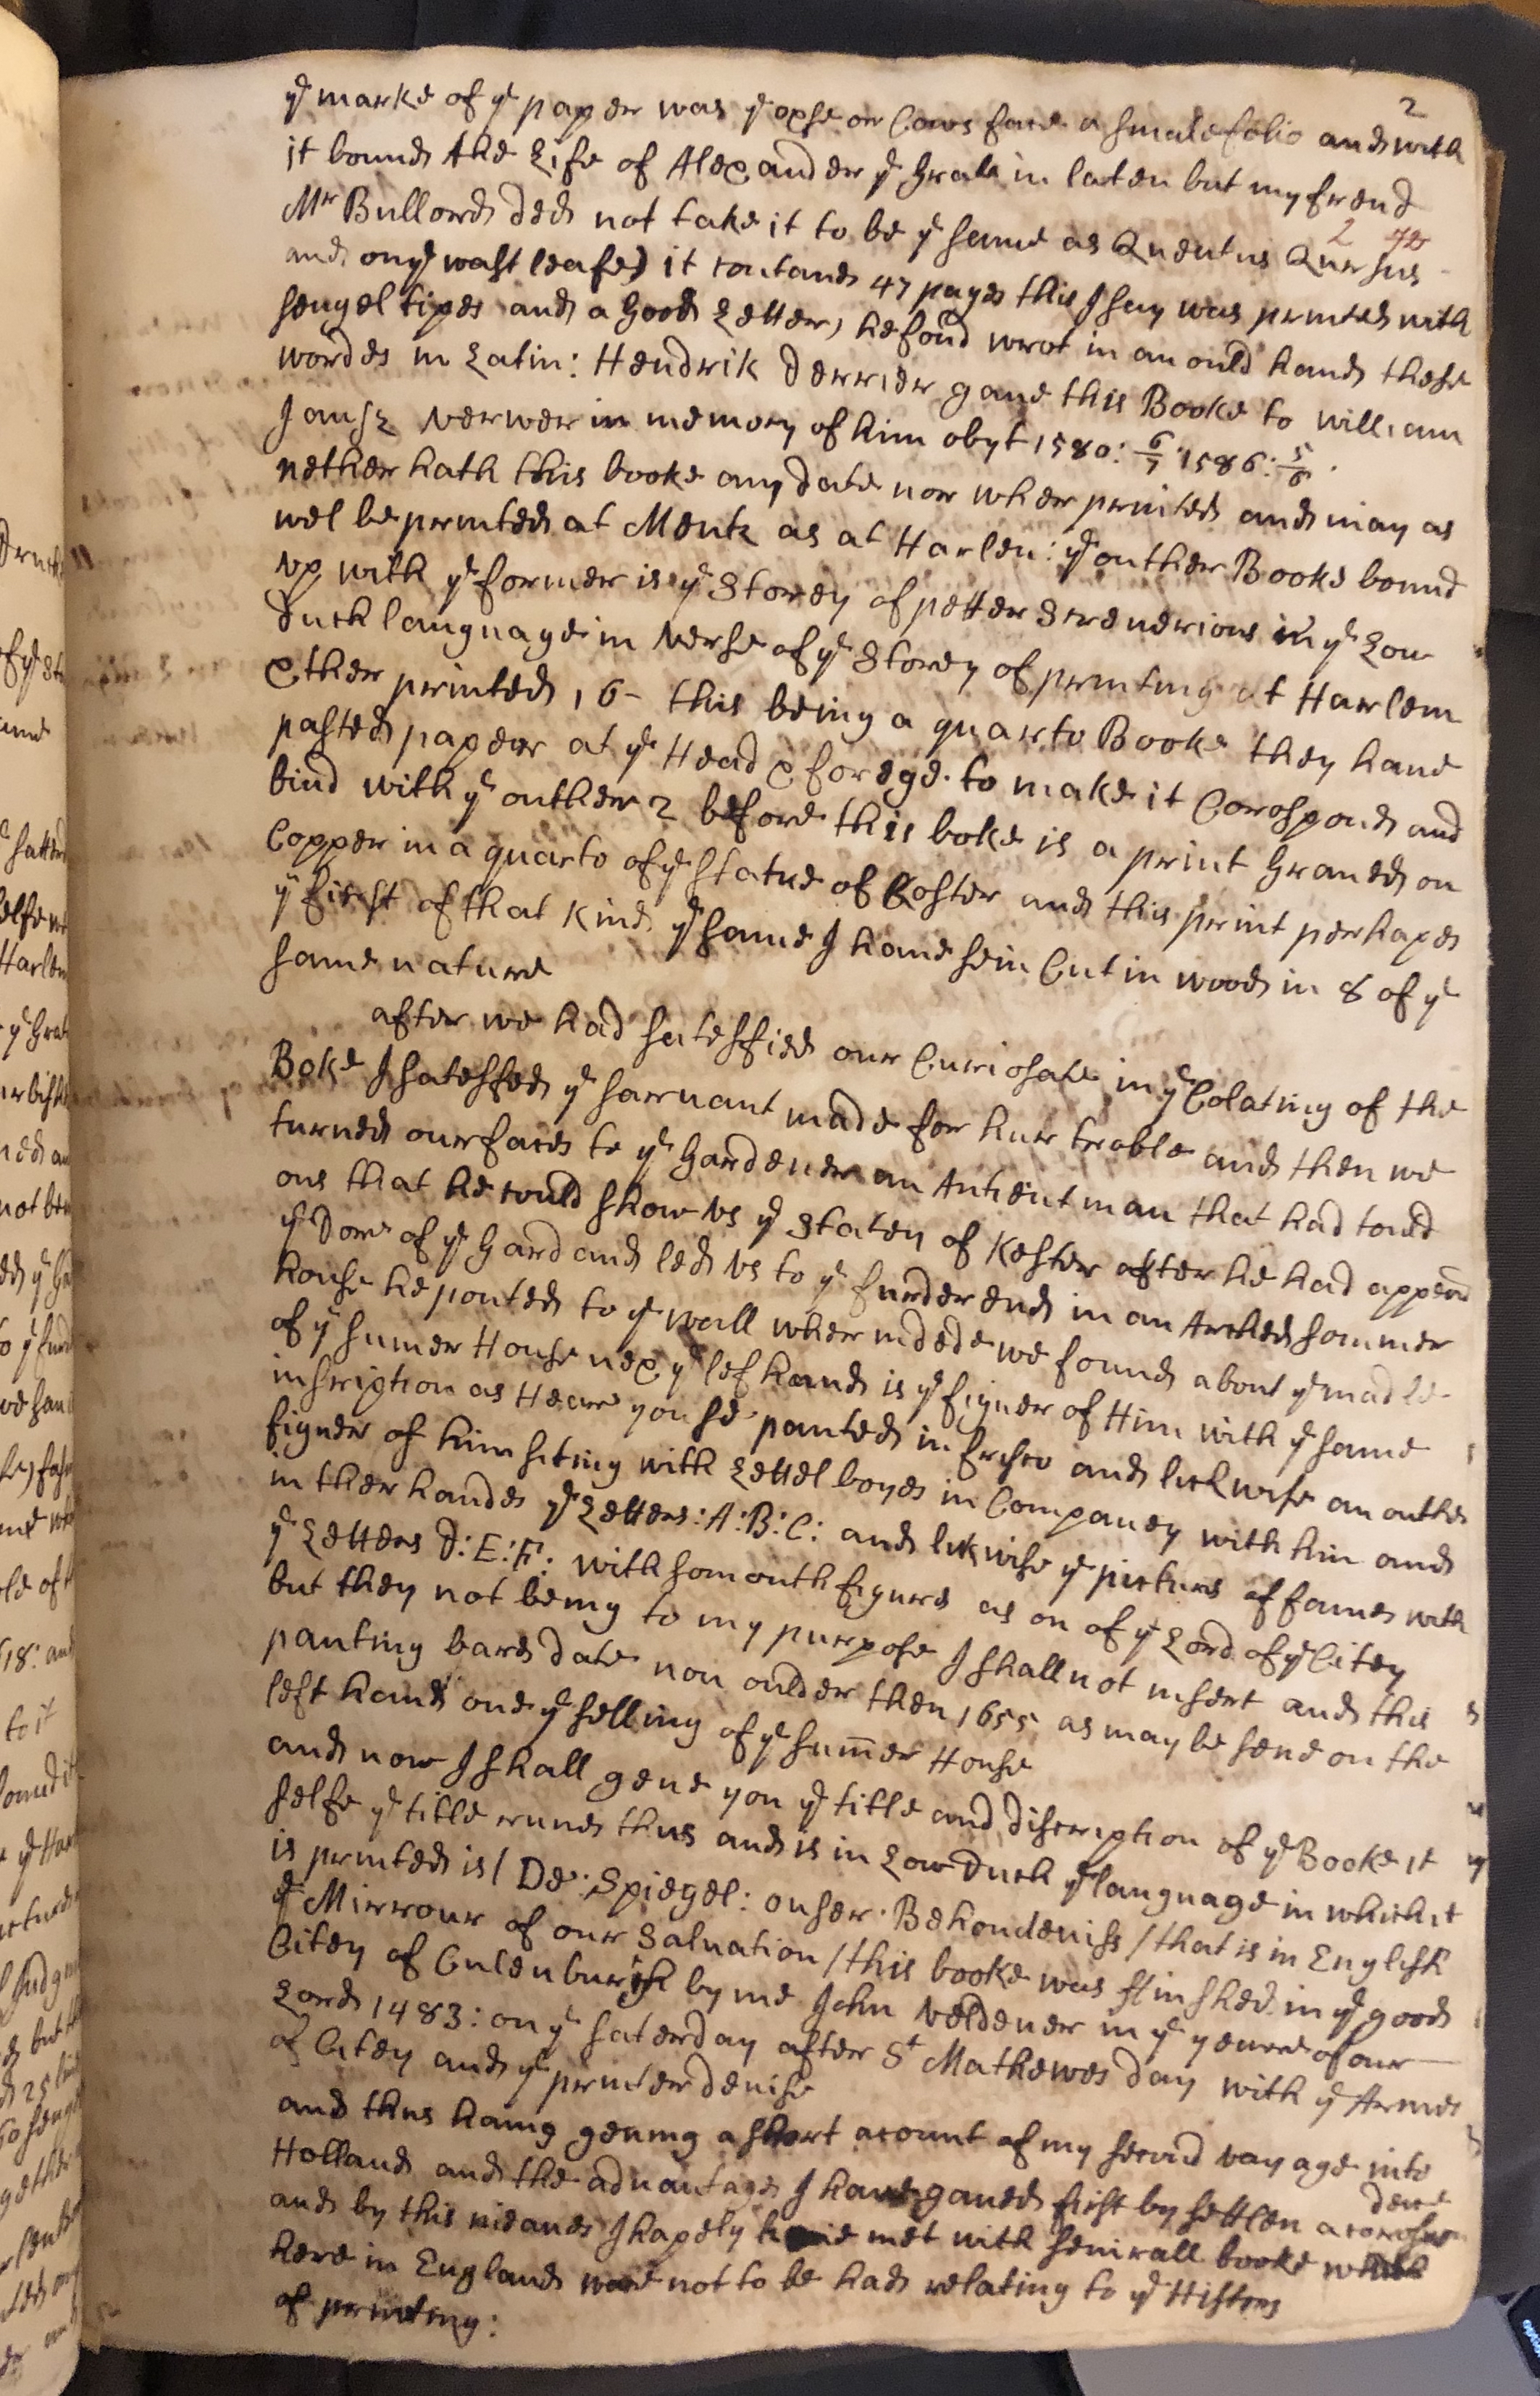 2
yͤ marke of yͤ paper was yͤ oxse or Cows face a smale folio and with
it bound the Life of Alexander yͤ Grate in laten but my frend
Mʳ Bullord ded not take it to be yͤ same as Quentus Qursus
2
and on yͤ wast leafe) it contand 47 pages this I say was printed with
sengel tipes and a Good Letter, he fond wrot in an ould hand these
wordes in Latin: Hendrik Derrier gave this Booke to william
Jansz verwer in memory of him obyt 1580: 6/7 1586: 5/6.
nether hath this booke any date nor wher printed and may as
wel be printed at Mentz as at Harlen: yͤ outher Booke bound
vp with yͤ former is yͤ Storey of petter Screverious in yͤ Low
duch language in verse of yͤ Storey of printing at Harlem
ther printed, 16- this being a quarto Booke they have
pasted paper at yͤ Head & foredge to make it Corospond and
bind with yͤ outher 2 before this boke is a print Graved on
Copper in a quarto of yͤ Statue of Coster and this print perhapes
yͤ first of that kind yͤ same I have sein Cut in wood in 8 of yͤ
same nature
after we had satesfied our Curiosate in yͤ Colating of the
Boke I satesfed yͤ sarvant made for hur troble and then we
turned our faces to yͤ Gardener an Antient man that had tould
ous that he could show vs yͤ Staten of Kester after he had append
yͤ Dore of yͤ Gard and led vs to yͤ furder end in an Arched sommer
house he ponted to yͤ wall wher indede we found about yͤ madle
of yͤ sumer House nex yͤ lef hand is yͤ figuer of Him with yͤ same
inscription as Heare you se panted in fresco and lickwise an outher
figuer of him siting with Lettel boyes in Companey with him and
in ther handes yͤ Letters: A: B: C: and likwise yͤ pictures of fames with
yͤ Letters D: E: F: with som outh figures as on of yͤ Lord of yͤ Citey
but they not being to my purpose I shall not insert and this
panting bares date non oulder then 1655 as may be sene on the
left hand one yͤ selling of yͤ sum̄er House
and now I shall geve you yͤ title and discription of yͤ Booke it
selfe yͤ title runes thus and is in Low Duch yͤ language in which it
is printed is / De: Spiegel: onser. Behoudeniss / that is in English
yͤ Mirrour of our Salvation / this booke was finshed in yͤ good
Citey of Culenburgh by me John veldener in yͤ yeare of our
Lord 1483: on yͤ saterday after Sᵗ Mathewes day with yͤ Armes
of Citey and yͤ printer devise
and thus having geving a short acount of my second vayage into
Holland and the advantages I have ganed first by settlen a corospondence
and by this meanes I hapely have met with severall booke which
here in England ware not to be had relating to yͤ History
of printing: